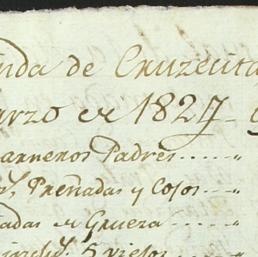 nda de Cruzeuta
arzo de 1827
arneros Padres .....
Preñadas y Cojos ....
adas de Gruera ........
5 viejos ....